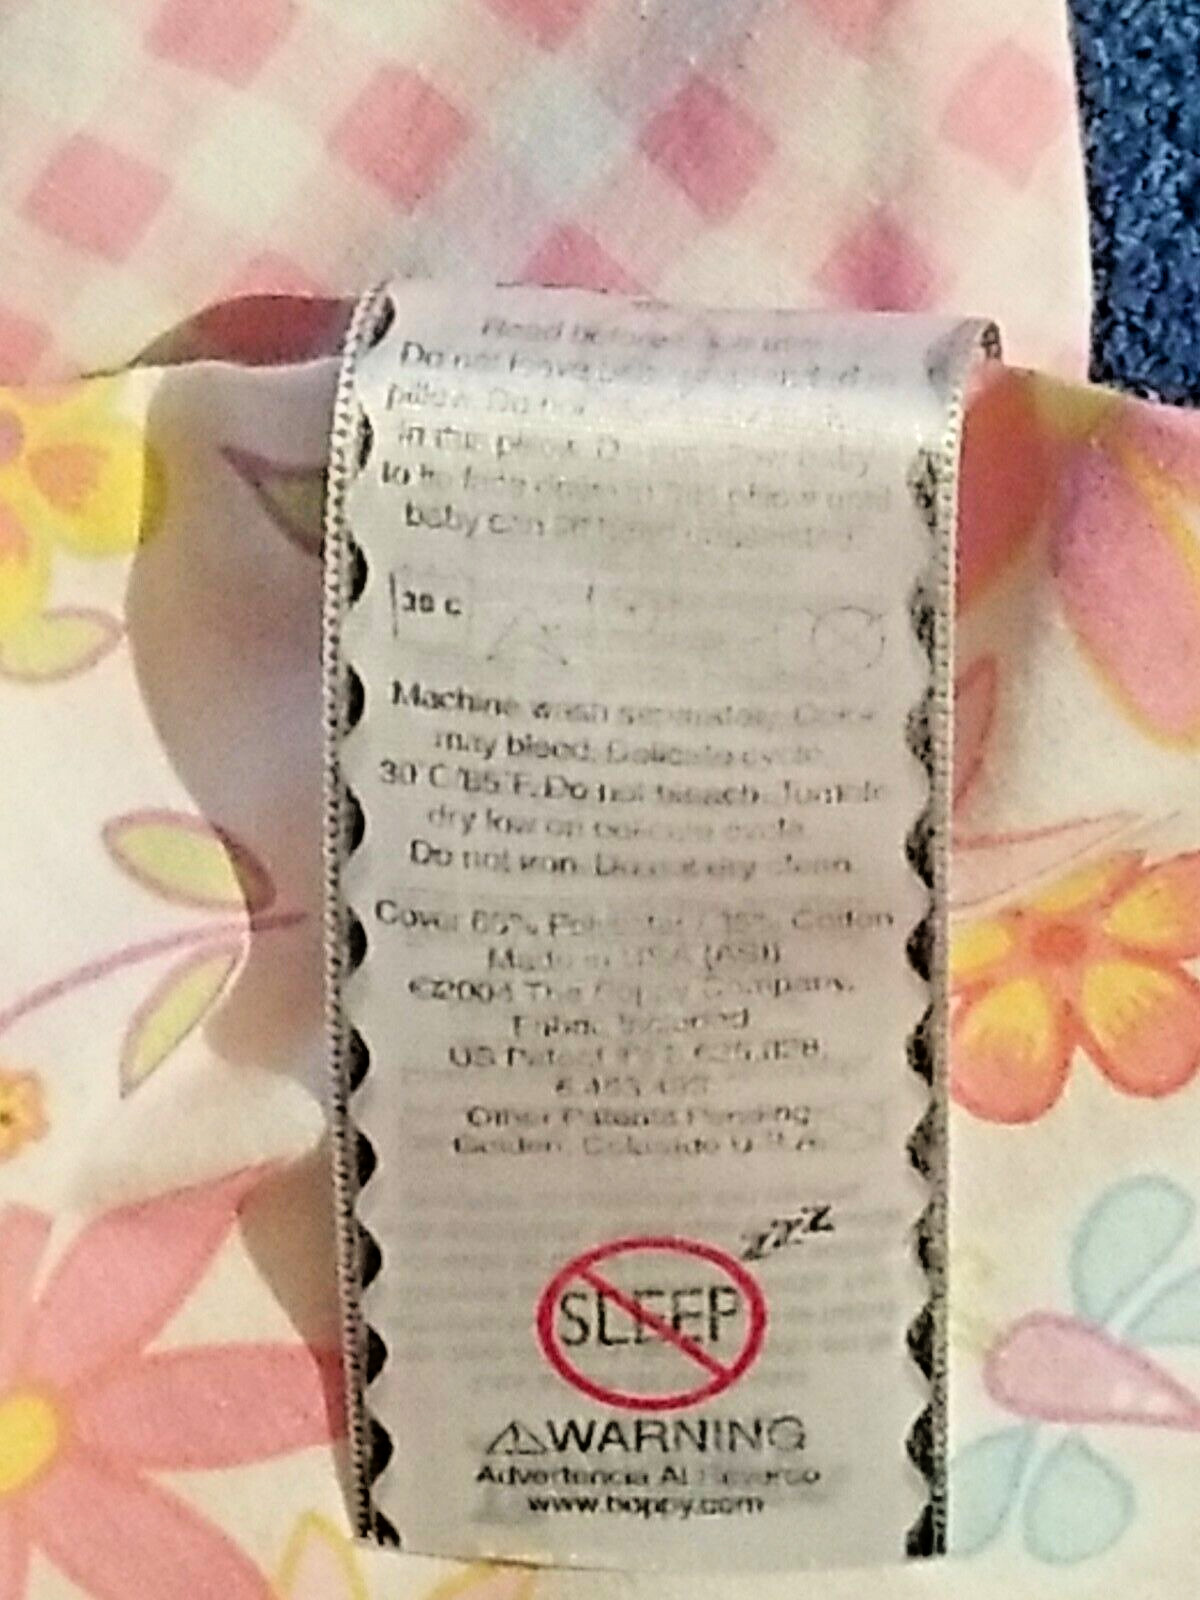 Read before
Do not leave
pillow. Do not
in this pillow. Do not allow baby
to be face down in this pillow until
baby can sit
30 C
Machine wash separately. Color
may bleed. Delicate cycle.
30°C/85°F. Do not bleach. Tumble
dry low on delicate cycle.
Do not iron. Do not dry clean.
Cover 65% Polyester / 35% Cotton
Made in USA (ASI)
©2004 The Boppy Company.
Fabric
US Patent
Other Patents Pending
Golden, Colorado U.S.A.
zzz
SLEEP
WARNING
Advertencia Al Reverso
www.boppy.com